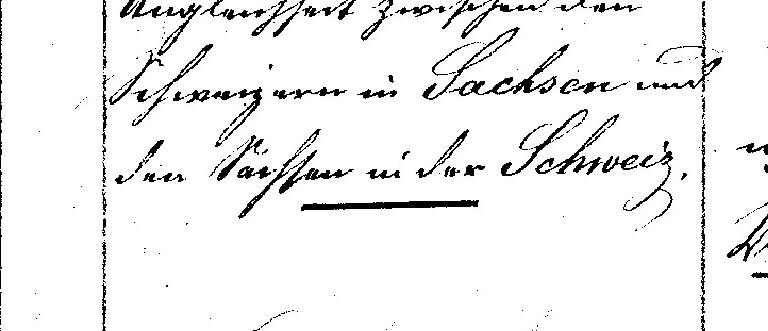 Ungleichheit zwischen den
Schweizern in Sachsen und
den Sachsen in der Schweiz.